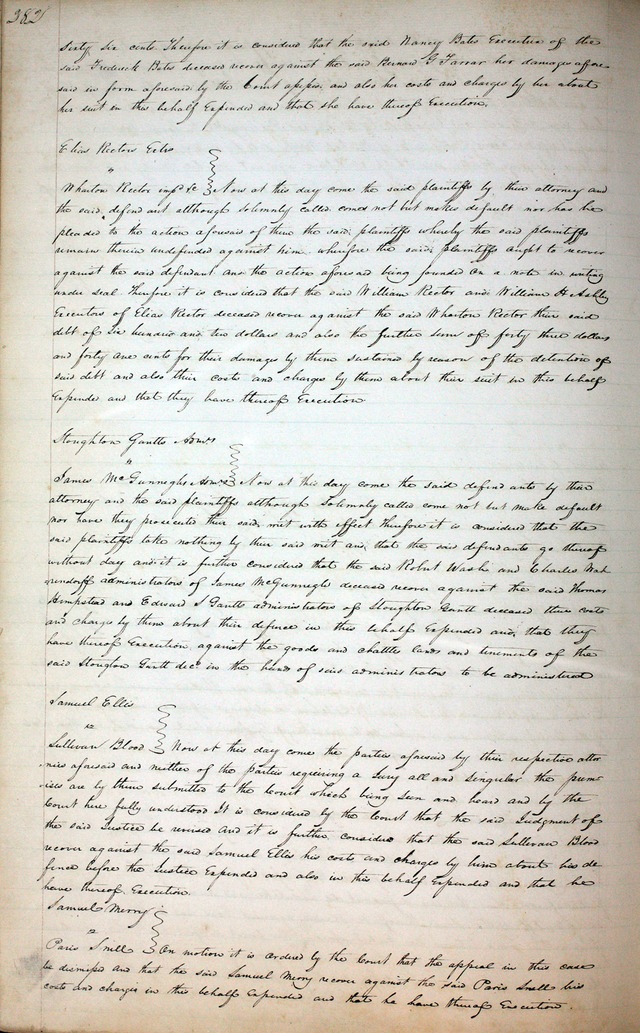 282
Sixty Six cents. Therefore it is considered that the said Nancy Bates Executrix of the
said Frederick Bates deceased recover against the said Bernard G Farrar her damages afore
said in form aforesaid by the Court assessed and also her costs and charges by her about
her suit in this behalf Expended and that she have thereof Execution.
Elias Rectors Exrs
"
Wharton Rector impd &c } Now at this day come the said plaintiffs by their attorney and
the said defendant although solemnly called comes not but makes default nor has he
pleaded to the action aforesaid of them the said plaintiffs whereby the said plaintiffs
remain therein undefended against him wherefore the said plaintiffs ought to recover
against the said defendant and the action aforesaid being founded on a note in writing
under seal Therefore it is considered that the said William Rector and William H Ashley
Executors of Elias Rector deceased recover against the said Wharton Rector their said
debt of Six hundred and ten dollars and also the further sum of forty three dollars
and forty one cents for their damages by them sustained by reason of the detention of
said debt and also their costs and charges by them about their suit in this behalf
Expended and that they have thereof Execution
Stoughton Gantts Admrs
"
James McGunnegles Admrs } Now at this day come the said defendants by their
attorney and the said plaintiffs although Solemnly called come not but make default
nor have they prosecuted their said writ with effect Therefore it is considered that the
said plaintiffs take nothing by their said writ and that the said defendants go thereof
without day and it is further considered that the said Robert Wash and Charles Wah
rendorff administrators of James McGunnegle deceased recover against the said Thomas
Hempstead and Edward S Gantt administrators of Stoughton Gantt deceased their costs
and charges by them about their defence in this behalf Expended and that they
have thereof Execution against the goods and chattles lands and tenements of the
said Stoughton Gantt decd in the hands of said administrators to be administered
Samuel Ellis
vs
Sullivan Blood } Now at this day come the parties aforesaid by their respective attor
nies aforesaid and neither of the parties requiring a Jury all and Singular the prem
ises are by them submitted to the Court which being seen and heard and by the
Court here fully understood It is considered by the Court that the said Judgment of
the said Justice be reversed And it is further considered that the said Sullivan Blood
recover against the said Samuel Ellis his costs and charges by him about his de
fence before the Justice Expended and also in this behalf Expended and that he
have thereof Execution.
Samuel Merry
vs
Paris Snell } On motion it is ordered by the Court that the appeal in this case
be dismissed and that the said Samuel Merry recover against the said Paris Snell his
costs and charges in this behalf Expended and that he have thereof Execution.